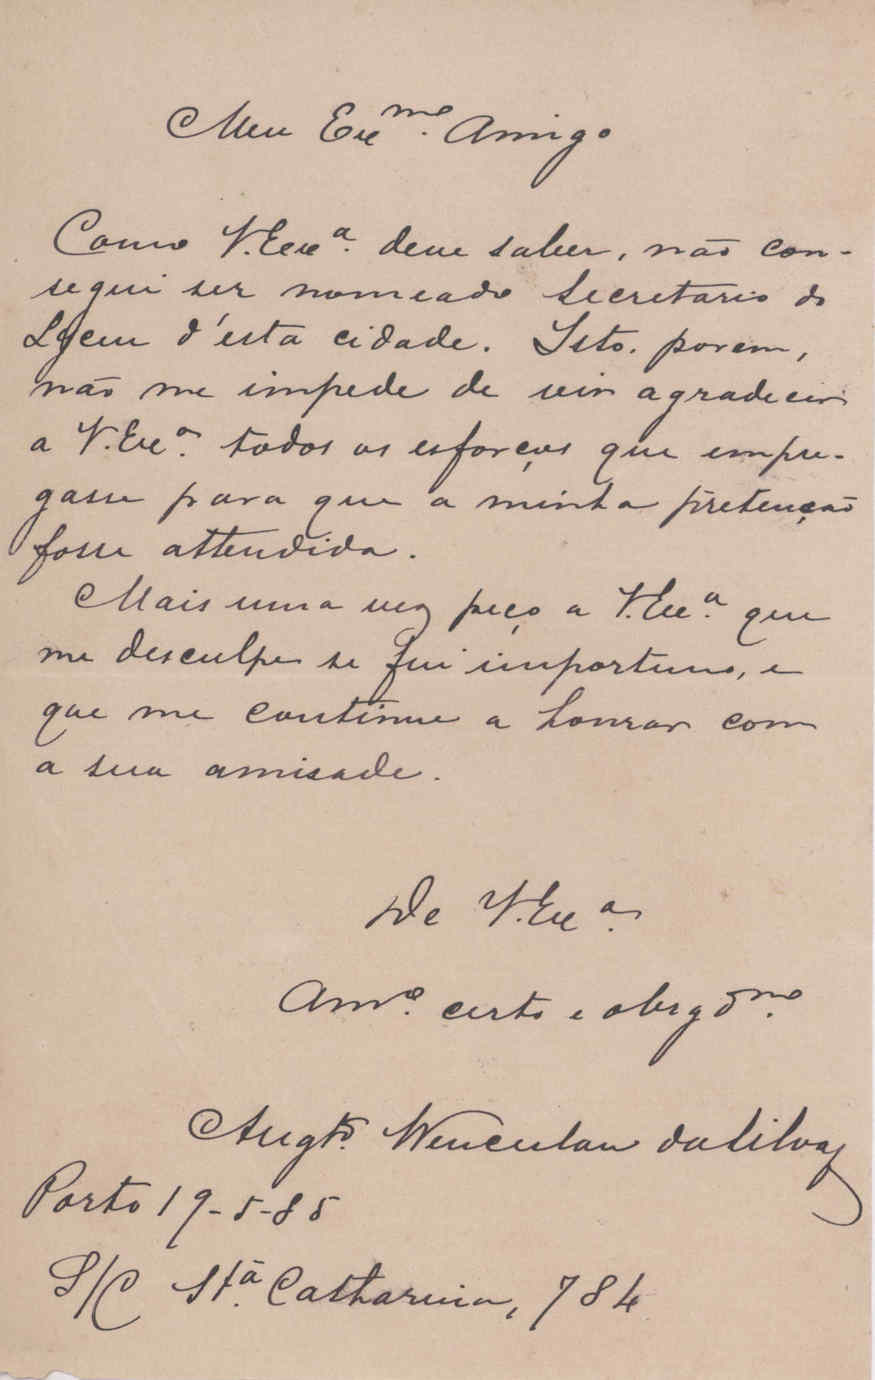 Meu Exmo. Amigo
Como V. Exca. deve saber, não con-
segui ser nomeado Secretario do
Lyceu d'esta cidade. Isto. porem,
não me impede de vir agradecer
a V. Exa. todos os esforços que empre-
gasse para que a minha pretenção
fosse attendida.
Mais uma vez peço a V. Exa. que
me desculpe se fui importuno, e
que me continue a honrar com
a sua amisade.
De V. Exa.
Amo. certo e obrgdmo.
Augto. Wenceslau da Silva
Porto 19-5-85
S/C Sta. Catharina, 784